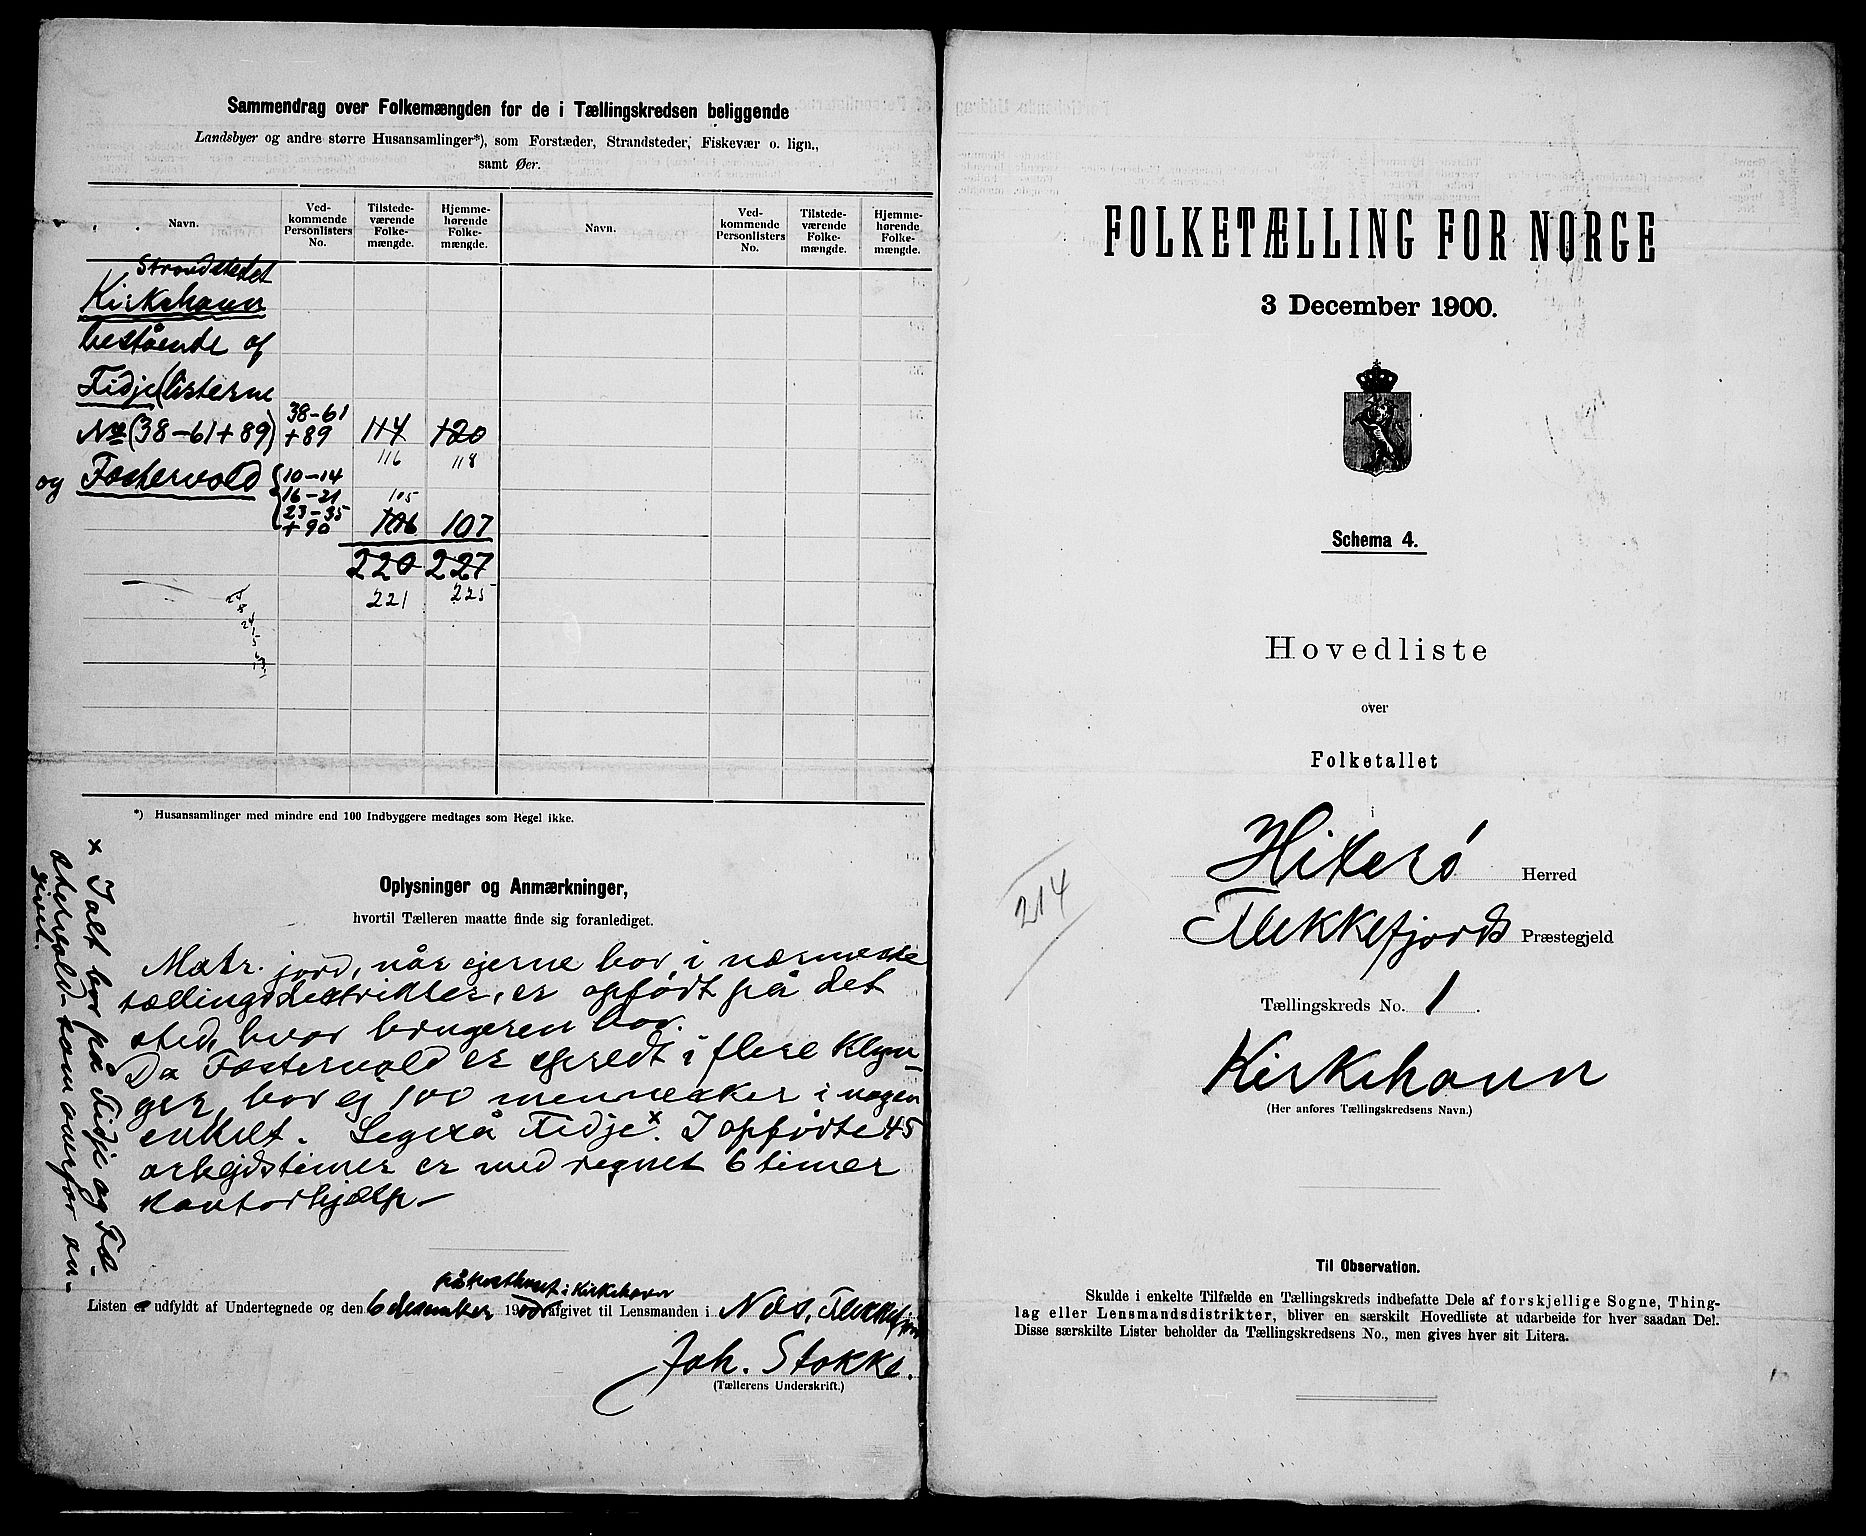 Sammendrag over Folkemængden for de i Tællingskredsen beliggende
Landsbyer og andre større Husansamlinger*), som Forstæder, Strandsteder, Fiskevær o. lign.,
samt Øer.
Navn.
Ved-
kommende
Personlisters
No.
Tilstede-
værende
Folke-
mængde.
Hjemme-
hørende
Folke-
mængde.
Navn.
Ved-
kommende
Personlisters
No.
Tilstede-
værende
Folke-
mængde.
Hjemme-
hørende
Folke-
mængde.
Strandstedet
Kirkehavn
bestående af
Fidje (listerne
No (38-61+89) 38-61 +89 114 120
116 118
og Fastervold 10-14
16-21 105
23-35
+90 106 107
220 227
221 225
*) Husansamlinger med mindre end 100 Indbyggere medtages som Regel ikke.
Oplysninger og Anmærkninger,
hvortil Tælleren maatte finde sig foranlediget.
Matr. jord, når ejerne bor i nærmeste
tællingsdistrikter, er opført på det
sted, hvor brugeren bor.
Da Fastervold er spredt i flere klyn-
ger, bor ej 100 mennesker i nogen
enkelt. Ligeså Fidje x. I opførte 45
arbejdstimer er med regnet 6 timer
kontorhjælp –
x I alt bor på Fidje og Fa-
stervold som ovenfor an-
givet.
på posthuset i Kirkehavn
Listen er udfyldt af Undertegnede og den 6 desember 1900 afgivet til Lensmanden i Næs, Flekkefjord
Joh. Stokke.
(Tællerens Underskrift.)
FOLKETÆLLING FOR NORGE
3 December 1900.
Schema 4.
Hovedliste
over
Folketallet
i
Hiterø Herred
Flekkefjords Præstegjeld
214
Tællingskreds No. 1.
Kirkehavn
(Her anføres Tællingskredsens Navn.)
Til Observation.
Skulde i enkelte Tilfælde en Tællingskreds indbefatte Dele af forskjellige Sogne, Thing-
lag eller Lensmandsdistrikter, bliver en særskilt Hovedliste at udarbeide for hver saadan Del.
Disse særskilte Lister beholder da Tællingskredsens No., men gives hver sit Litera.